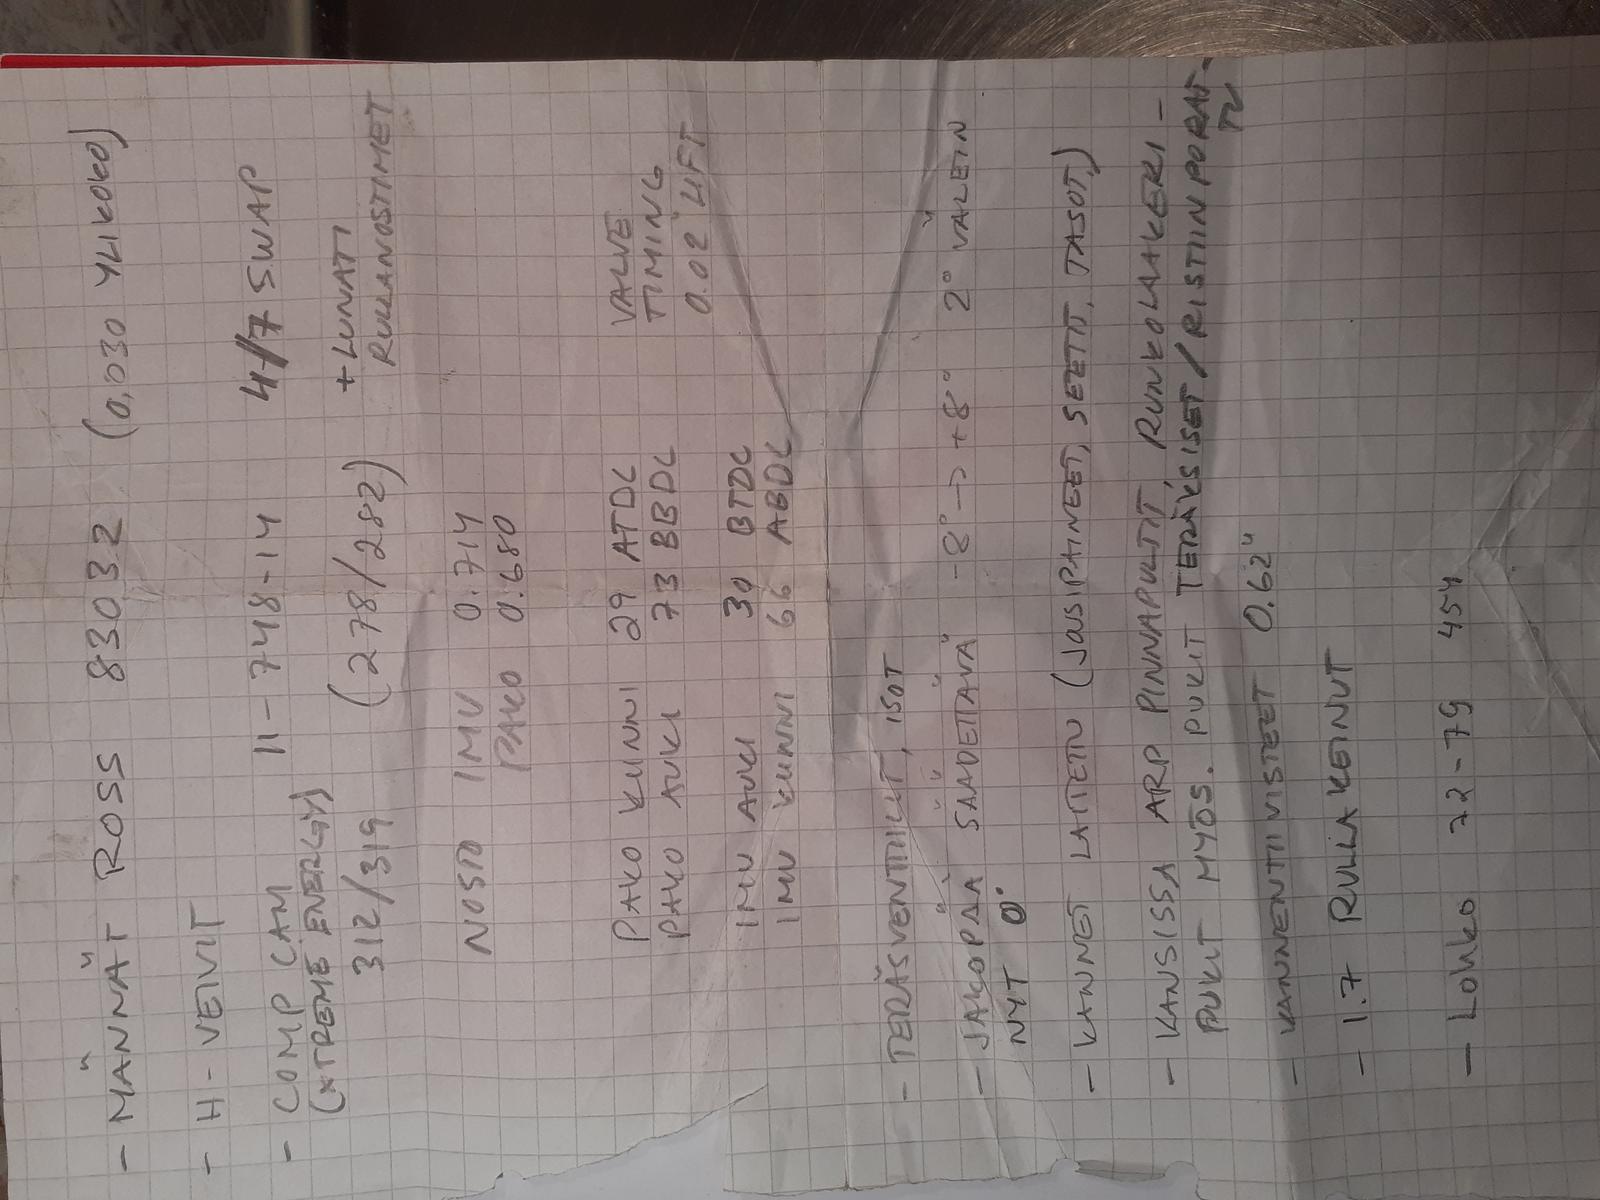 - MÄNNÄT ROSS 83032 (0,030 YLIKOKO)
- H-VEIVIT
- COMP CAM 11-748-14 4/7 SWAP
(XTREME ENERGY) (278/282) + LUNATI
312/319 RULLANOSTIMET
NOSTO IMU 0.714
PAKO 0.680
PAKO KIINNI 29 ATDC VALVE
PAKO AUKI 73 BBDC TIMING
0.02" LIFT
IMU AUKI 30 BTDC
IMU KIINNI 66 ABDC
- TERÄSVENTTIILIT, ISOT
- JAKOPÄÄ SÄÄDETTÄVÄ -8° -> +8° 2° VÄLEIN
NYT 0°
- KANNET LAITETTU (JOUSIPAINEET, SEETIT, TASOT,)
- KANSISSA ARP PINNAPULTIT, RUNKOLAAKERI-
PUKIT MYÖS. PUKIT TERÄKSISET/RISTIINPORAT-
TU
- KANNENTIIVISTEET 0.62"
- 1.7 RULLAKEINUT
- LOHKO 72-79 454